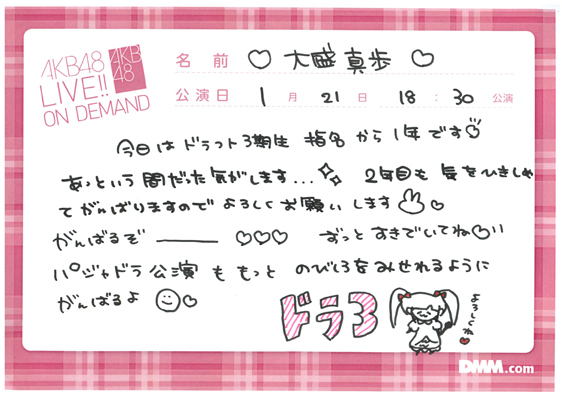 AKB48
LIVE!!
ON DEMAND
AKB
48
名前 ♡ 大盛真歩 ♡
公演日 1月 21日 18:30 公演
今日は ドラフト3期生 指名 から 1年 です♡
あっという 間だった 気がします... 2年目も 気をひきしめ
てがんばりますので よろしくお願いします ♡
がんばるぞ ――― ♡♡♡ ずっとすきでいてね♡
パジャドラ公演 も もっと のびしろをみせれるように
がんばるよ ♡
ドラ3
よろしくね
DMM.com